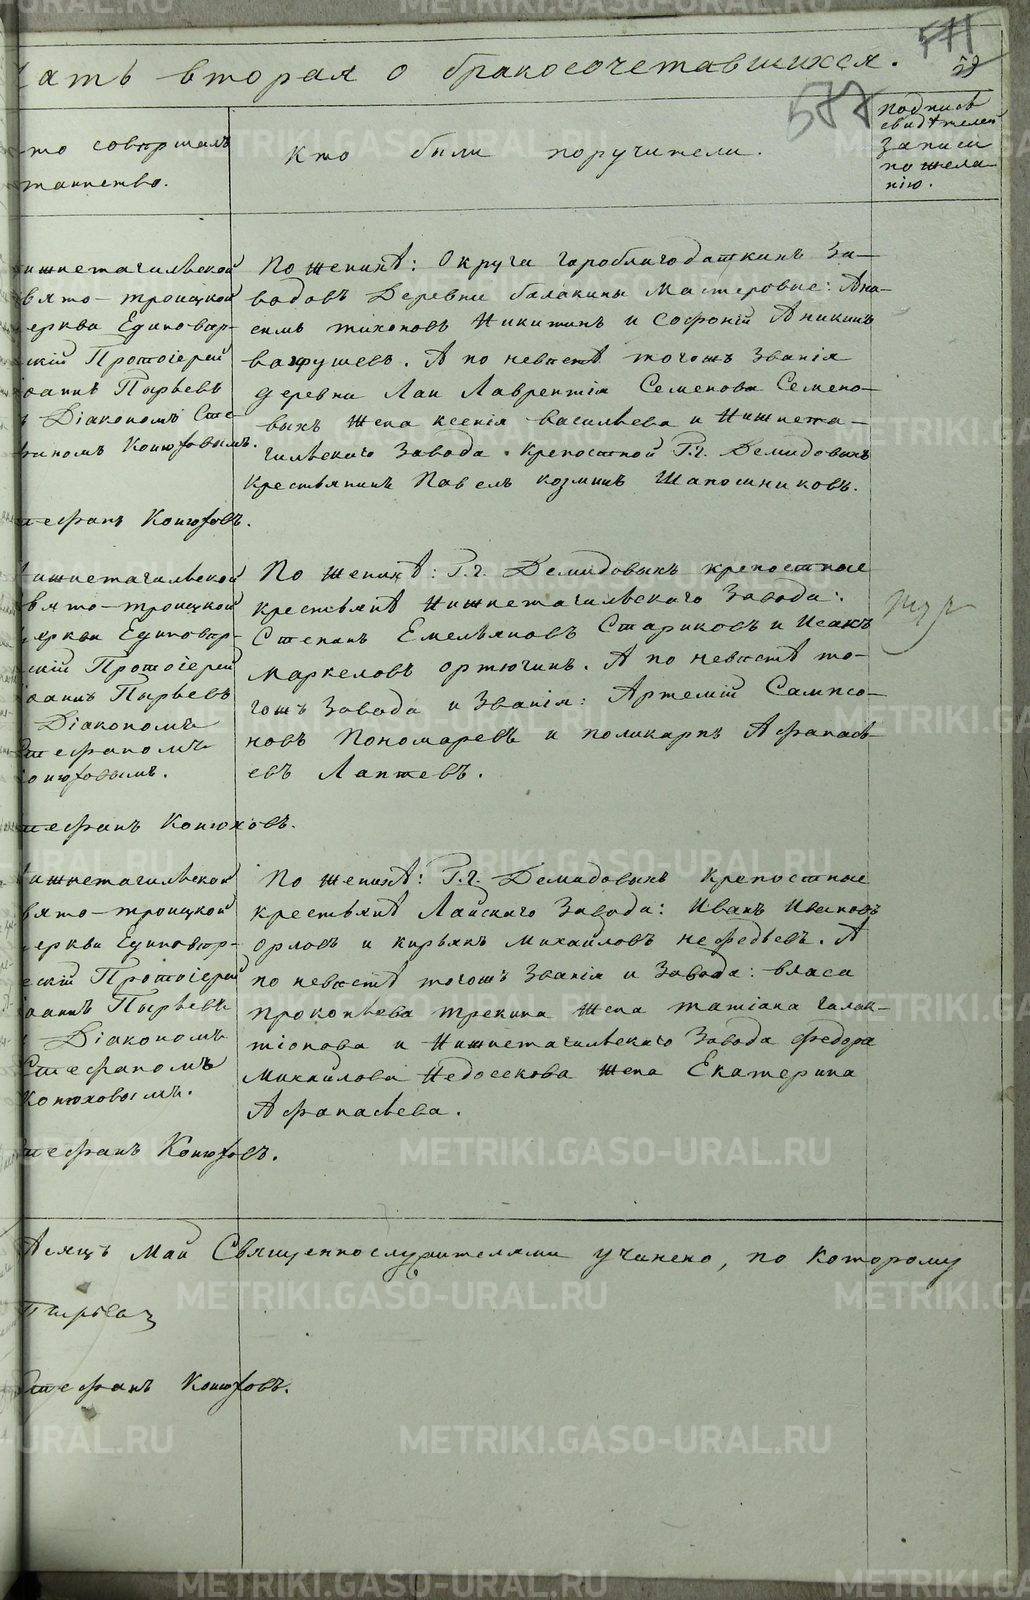 571
59
сать вторая о бракосочетавшихся.
577
то совершалъ
таинство.
Кто были поручители.
подпись
свидѣтелей
записи
по жела
нію.
ижнетагильской
вято-троицкой
еркви Единовѣр-
скій Протоіерей
оаннъ Пырьевъ
Діакономъ Сте-
фаномъ Конюховымъ.
тефанъ Конюховъ.
По женихѣ: Округи гороблагодатскихъ За-
водовъ Деревни балакины Мастеровые: Ана-
симъ тихоновъ Никитинъ и Софоній Аникинъ
вахрушевъ. А по невѣстѣ тогожъ Званія
деревни Лаи Лаврентія Семенова Семено-
выхъ Жена ксенія васильева и Нижнета-
гильскаго Завода крепостной Г.г. Демидовыхъ
крестьянинъ Павелъ козминъ Шапошниковъ.
ижнетагильской
вято-троицкой
еркви Единовѣр-
скій Протоіерей
оаннъ Пырьевъ
Діакономъ
Стефаномъ
онюховымъ.
тефанъ Конюховъ.
По женихѣ: Г.г. Демидовыхъ крепостные
крестьянѣ Нижнетагильскаго Завода:
Степанъ Емельяновъ Стариковъ и Исакъ
маркеловъ ортюгинъ. А по невѣстѣ то-
гожъ Завода и Званія: Артемій Сампсо-
новъ Пономаревъ и поликарпъ Афанась-
евъ Лаптевъ.
ижнетагильской
вято-троицкой
еркви Единовѣр-
ескій Протоіерей
оаннъ Пырьевъ
Діакономъ
Стефаномъ
Конюховымъ.
тефанъ Конюховъ.
По женихѣ: Г.г. Демидовыхъ крепостные
крестьянѣ Лайскаго Завода: Иванъ Ивановъ
Орловъ и кирьякъ Михайловъ нефедьевъ. А
по невѣстѣ тогожъ Званія и Завода: власа
прокопьева трекина жена татіана галак-
тіонова и Нижнетагильскаго Завода Федора
Михайлова Недосекова жена Екатерина
Афанасьева.
Мѣсяцъ Май Священнослужителями учинено, по которому
Пырьевъ
Стефанъ Конюховъ.
METRIKI.GASO-URAL.RU